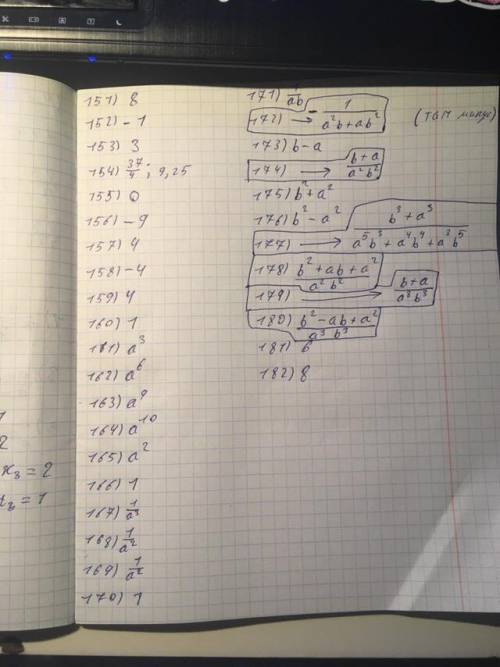 151) 8
152) - 1
153) 3
154) 37/4 ; 9,25
155) 0
156) - 9
157) 4
158) - 4
159) 4
160) 1
161) a³
162) a⁶
163) a⁹
164) a¹⁰
165) a²
166) 1
167) 1/a³
168) 1/a²
169) 1/a²
170) 1
171) 1/ab
172) → - 1/(a²b+ab²) (там минус)
173) b-a
174) → (b+a)/(a²b²)
175) b²+a²
176) b²-a²
177) → (b³+a³)/(a⁵b³+a⁴b⁴+a³b⁵)
178) (b²+ab+a²)/(a²b²)
179) → (b+a)/(a³b³)
180) (b²-ab+a²)/(a³b³)
181) 6
182) 8
2
x₃ = 2
= 1